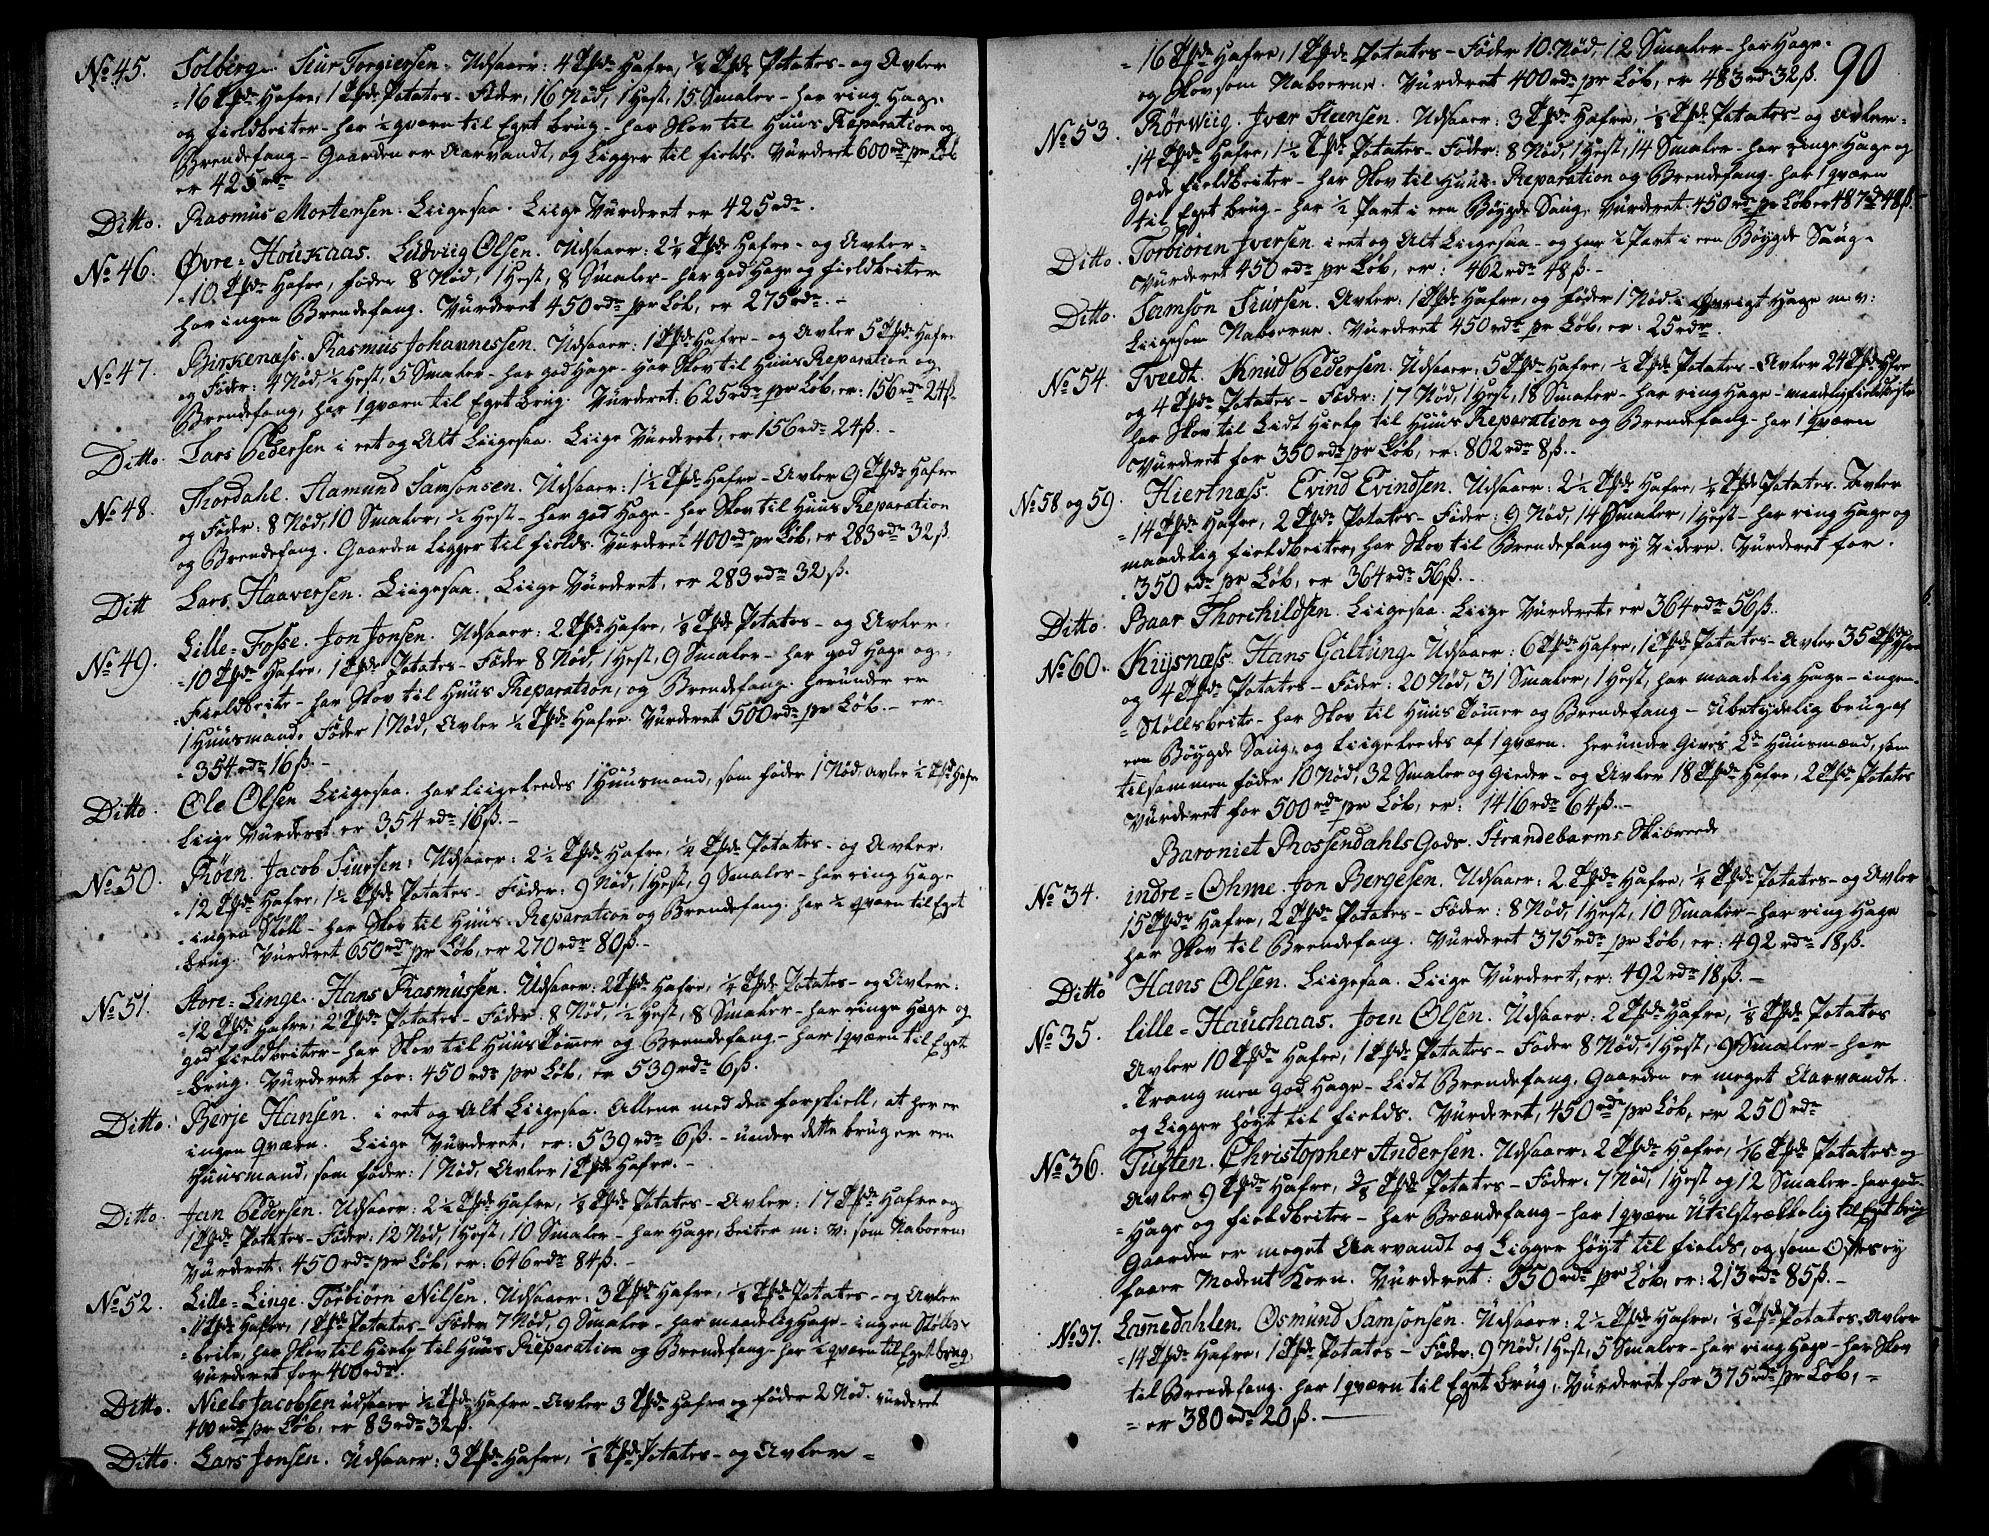 No 45. Solberg. Siur Torgiersen. Udsaaer: 4 Tpde Hafre, 1/8 Tpde Potates - og Avler
16 Tpde Hafre, 1 Tpde Potates - Föder, 16 Nöd, 1 Hest, 15 Smaler - har ring Hage
og fieldbeiter - har 1/2 qværn til Eget brug - har Skov til Huus Reparation og
Brendefang - Gaarden er Aarvandt, og Ligger til fields. Vurderet 600 rdr pr Løb
er 425 rdr
Ditto. Rasmus Mortensen. Liigesaa. Liige Vurderet er 425 rdr.
No 46. Øvre = Houkaas. Ludviig Olsen. Udsaaer: 2 1/2 Tpde Hafre - og Avler =
10 Tpde Hafre, föder 8 Nöd, 1 Hest, 8 Smaler - har god Hage og fieldbeiter
har ingen Brendefang. Vurderet 450 rdr pr Løb, er 275 rdr. -
No 47. Birkenæss. Rasmus Johannessen. Udsaaer: 1 Tpde Hafre - og Avler 5 Tpde Hafre
og Föder: 4 Nöd, 1/2 Hest, 5 Smaler - har god Hage - har Skov til Huus Reparation og
Brendefang, har 1 qværn til Eget brug. Vurderet: 625 rdr pr Løb, er: 156 rdr 24 ß.
Ditto. Lars Pedersen i eet og Alt Liigesaa. Liige Vurderet, er 156 rdr 24 ß. -
No 48. Thordahl. Aamund Samsonsen. Udsaaer: 1 1/2 Tpde Hafre - Avler 9 Tpde Hafre
og Föder: 8 Nöd, 10 Smaler, 1/2 Hest - har god Hage - har Skov til Huus Reparation
og Brendefang. Gaarden Ligger til fields. Vurderet 400 rdr pr Løb, er 283 rdr 32 ß.
Ditt Lars Haaversen. Liigesaa. Liige Vurderet, er 283 rdr 32 ß.
No 49. Lille = Fosse. Jon Jonsen. Udsaaer: 2 Tpde Hafre, 1/8 Tpde Potates - og Avler
10 Tpde Hafre, 1 Tpde Potates - Föder 8 Nöd, 1 Hest, 9 Smaler - har god Hage og
Fieldbeite - har Skov til Huus Reparation, og Brendefang. herunder er
1 Huusmand. Föder 1 Nöd, Avler 1/2 Tpde Hafre. Vurderet 500 rdr pr Løb. - er
354 rdr 16 ß. -
Ditto. Ole Olsen Liigesaa. har liigeleedes 1 Huusmand, som föder 1 Nöd, Avler 1/2 Tpde Hafre
Liige Vurderet er 354 rdr 16 ß. -
No 50. Røen. Jacob Siursen: Udsaaer: 2 1/2 Tpde Hafre, 1/4 Tpde Potates - og Avler.
12 Tpde Hafre, 1 1/2 Tpde Potates - Föder: 9 Nöd, 1 Hest, 9 Smaler - har ring Hage
ingen Støll - har Skov til Huus Reparation og Brendefang. har 1/2 qværn til Eget
brug. Vurderet 650 rdr pr Løb, er 270 rdr 80 ß. -
No 51. Store = Linge. Hans Rasmussen. Udsaaer: 2 Tpde Hafre, 1/4 Tpde Potates - og Avler:
12 Tpde Hafre, 2 Tpde Potates - Föder: 8 Nöd, 1/2 Hest, 8 Smaler - har ringe Hage og
god fieldbeiter - har Skov til Huus Tømmer og Brendefang - har 1 qværn til Eget
brug. Vurderet for: 450 rdr pr Løb, er 539 rdr 6 ß.
Ditto: Berje Hansen. i eet og Alt Liigesaa. Allene med den forskiell, at her er
ingen qværn. Liige Vurderet, er: 539 rdr 6 ß. - under dette brug er een
Huusmand, som föder: 1 Nöd, Avler 1 Tpde Hafre. -
Ditto. Jan Pedersen. Udsaaer: 2 1/2 Tpde Hafre, 1/8 Tpde Potates - Avler: 17 Tpde Hafre og
1 Tpde Potates - Föder: 12 Nöd, 1 Hest, 10 Smaler - har Hage, beiter m: v: som Naboerne
Vurderet: 450 rdr pr Løb, er: 646 rdr 84 ß. -
No 52. Lille = Linge. Torbiørn Nilsen. Udsaaer: 3 Tpde Hafre, 1/8 Tpde Potates - og Avler
11 Tpde Hafre, 1 Tpde Potates - Föder 7 Nöd, 9 Smaler - har maadelig Hage - ingen Stølls
beite, har Skov til Hielp til Huus Reparation og Brendefang - har 1/2 qværn til Eget brug.
Vurderet for 400 rdr.
Ditto. Niels Jacobsen udsaaer 1/2 Tpde Hafre - Avler 3 Tpde Hafre og föder 2 Nöd. vurderet
400 rdr pr Løb, er 83 rdr 32 ß.
Ditto. Lars Jonsen. Udsaaer: 3 Tpde Hafre, 1/8 Tpde Potates - og Avler =
90
= 16 Tpde Hafre, 1 Tpde Potates - Föder 10 Nöd, 12 Smaler - har Hage
og Skov som Naboerne. Vurderet 400 rdr pr Løb, er 483 rdr 32 ß.
No 53. Rørwiig. Iver Steensen. Udsaaer: 3 Tpde Hafre, 1/8 Tpde Potates - og Avler =
14 Tpde Hafre, 1 1/2 Tpde Potates - Föder: 8 Nöd, 1 Hest, 14 Smaler - har ringe Hage og
gode fieldbeiter - har Skov til Huus Reparation og Brendefang. har 1 qværn
til Eget brug - har 1/2 Part i een Bøygde Saug. Vurderet: 450 rdr pr Løb er 487 rd 48 ß
Ditto. Torbiøren Iversen i eet og Alt Liigesaa - og har 1/4 Part i een Bøygde Saug.
Vurderet 450 rdr pr Løb, er: 462 rdr 48 ß. -
Ditto. Samson Siursen. Avler: 1 Tpde Hafre, og föder 1 Nöd. i Øvrigt Hage m: v:
Liigesom Naboerne. Vurderet 450 rdr pr Løb, er: 25 rdr.
No 54. Tveedt. Knud Pedersen. Udsaaer: 5 Tpde Hafre, 1/2 Tpde Potates - Avler 24 Tpde Hafre
og 4 Tpde Potates - Föder: 17 Nöd, 1 Hest, 18 Smaler - har ring Hage - maadelig fieldbeiter
har Skov til Lidt Hielp til Huus Reparation og Brendefang - har 1 qværn
Vurderet for 350 rdr pr Løb, er: 802 rdr 8 ß. -
No 58 og 59. Hiertnæss. Evind Evindsen. Udsaaer: 2 1/2 Tpde Hafre, 1/4 Tpde Potates. Avler
14 Tpde Hafre, 2 Tpde Potates - Föder: 9 Nöd, 14 Smaler, 1 Hest - har ring Hage og
maadelig fieldbeiter, har Skov til Brendefang ey Videre. Vurderet for
350 rdr pr Løb, er 364 rdr 56 ß. -
Ditto. Baar Thorchildsen. Liigesaa. Liige Vurderet er 364 rdr 56 ß.
No 60. Kiysnæs. Hans Galtung. Udsaaer: 6 Tpde Hafre, 1 Tpde Potates - Avler 35 Tpde Hafre
og 4 Tpde Potates - Föder: 20 Nöd, 31 Smaler, 1 Hest, har maadelig Hage - ingen
Støllsbeite - har Skov til Huus Tømmer og Brendefang - Ubetydelig brug af
een Bøygde Saug, og Liigeleedes af 1 qværn. herunder Gives 2de Huusmænd, som
tilsammen föder 10 Nöd, 32 Smaler og Gieder - og Avler 18 Tpde Hafre, 2 Tpde Potates
Vurderet for 500 rdr pr Løb, er: 1416 rdr 64 ß. -
Baroniet Rossendahls Gods. Strandebarms Skibreede
No 34. indre = Ohme. Jon Bergesen. Udsaaer: 2 Tpde Hafre, 1/4 Tpde Potates - og Avler
15 Tpde Hafre, 2 Tpde Potates - Föder: 8 Nöd, 1 Hest, 10 Smaler - har ring Hage
har Skov til Brendefang. Vurderet 375 rdr pr Løb, er: 492 rdr 18 ß.
Ditto Hans Olsen. Liigesaa. Liige Vurderet, er: 492 rdr 18 ß. -
No 35. Lille = Hauchaas. Joen Olsen. Udsaaer: 2 Tpde Hafre, 1/8 Tpde Potates
Avler 10 Tpde Hafre, 1 Tpde Potates - Föder 8 Nöd, 1 Hest, 9 Smaler - har
Trang men god Hage - Lidt Brendefang. Gaarden er meget Aarvandt
og Ligger høyt til fields. Vurderet, 450 rdr pr Løb, er 250 rdr
No 36. Tuften. Christopher Andersen. Udsaaer: 2 Tpde Hafre, 1/16 Tpde Potates og
Avler 9 Tpde Hafre, 3/8 Tpde Potates - Föder: 7 Nöd, 1 Hest og 12 Smaler - har god
= Hage og fieldbeiter - har Brændefang - har 1 qværn Utilstrækkelig til Eget brug
Gaarden er meget Aarvandt og Ligger høyt til fields, og som Oftes ey
faaer Modent Korn. Vurderet: 350 rdr pr Løb, er: 213 rdr 85 ß. -
No 37. Lamedahlen. Osmund Samsonsen. Udsaaer: 2 1/2 Tpde Hafre, 1/8 Tpde Potates, Avler
14 Tpde Hafre, 1 Tpde Potates - Föder: 9 Nöd, 1 Hest, 5 Smaler - har ring Hage - har Skov
til Brendefang. har 1 qværn til Eget brug, Vurderet for 375 rdr pr Løb, =
= er 380 rdr 20 ß. -